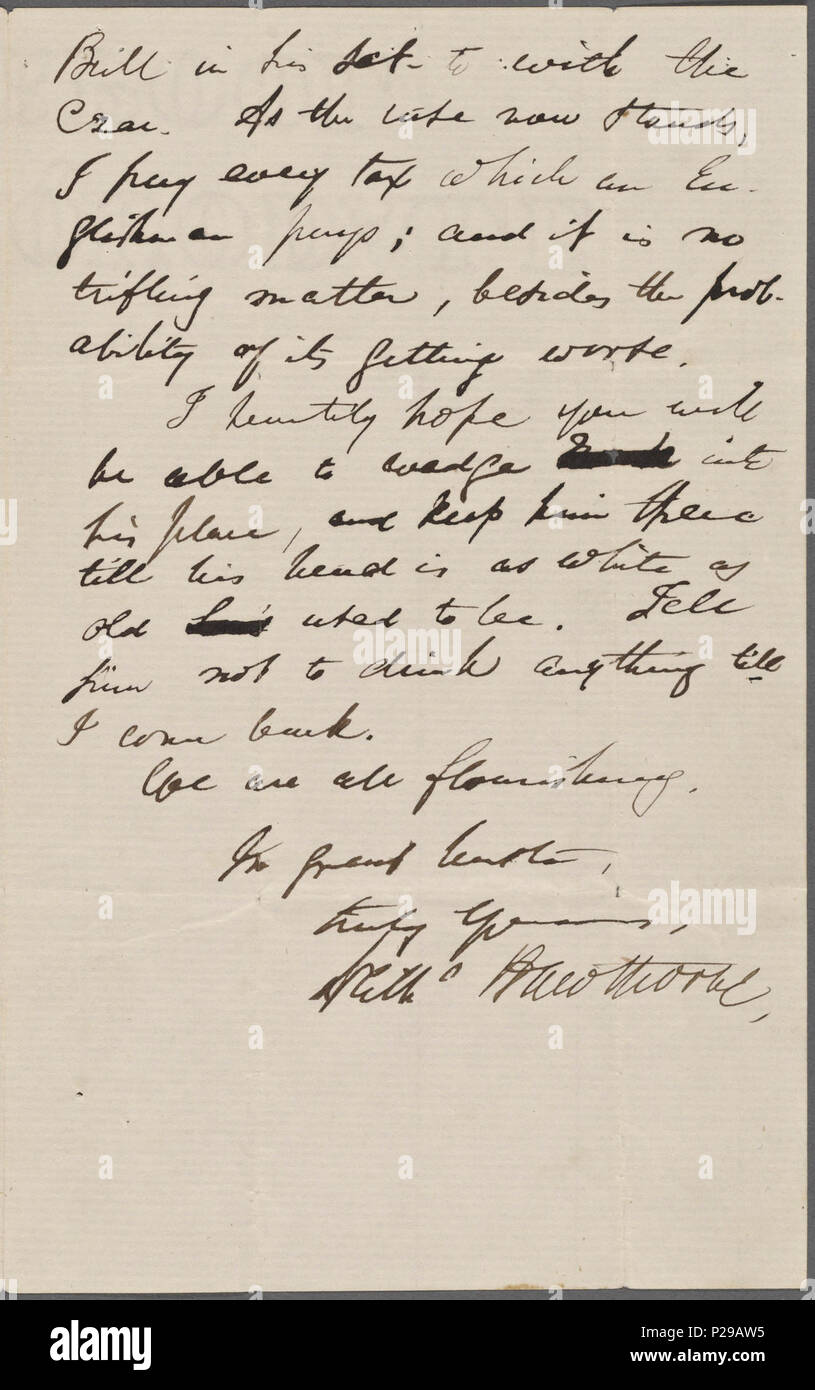 Bull in his set-to with the
Czar. As the case now stands,
I pay every tax which an En-
glishman pays; and it is no
trifling matter, besides the prob-
ability of its getting worse.
I heartily hope you will
be able to wedge into
his place, and keep him there
till his head is as white as
old used to be. Tell
him not to drink anything till
I come back.
We are all flourishing.
In great haste,
truly Yours,
Nathl Hawthorne,
alamy
Image ID: P29AW5
www.alamy.com